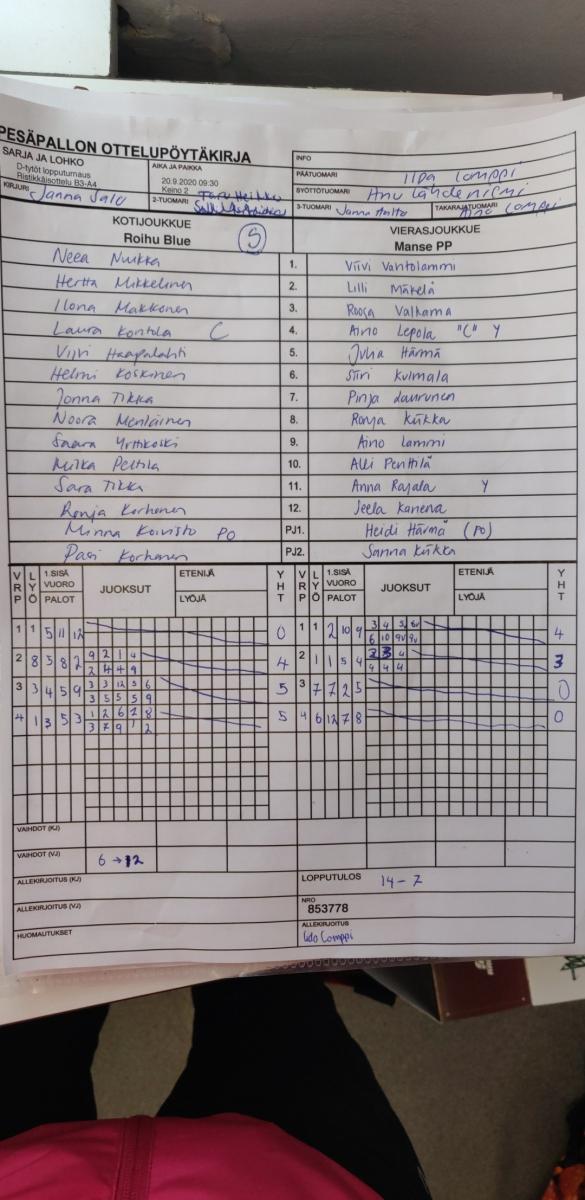 PESÄPALLON OTTELUPÖYTÄKIRJA
SARJA JA LOHKO
D-tytöt lopputurnaus
Ristikkäisottelu B3-A4
AIKA JA PAIKKA
20.9.2020 09:30
Keino 2
INFO
PÄÄTUOMARI Ilpa Lomppi
SYÖTTÖTUOMARI Anu Lähdeniemi
KIRJURI Janna Salo
2-TUOMARI
3-TUOMARI Janna
TAKARAJATUOMARI Aino Lomppi
KOTIJOUKKUE
Roihu Blue 5
VIERASJOUKKUE
Manse PP
Neea 1. Viivi Vantolammi
Hertta Mikkelinen 2. Lilli Mäkelä
Ilona Makkonen 3. Roosa Valkama
Laura Kontola C 4. Aino Lepola "C" Y
Viivi Haapalahti 5. Juha Härmä
Helmi Koskinen 6. Siiri Kulmala
Jonna Tikka 7. Pinja Laurunen
Noora 8. Ronja Kukka
Saara Yrttikoski 9. Aino Lammi
Milka Pelttila 10. Alli Penttilä
Sara Tikka 11. Anna Rajala Y
Ronja Korhonen 12. Jeela Kanena
Minna Koivisto PO PJ1. Heidi Härmä (PO)
Pasi Korhonen PJ2. Sanna Kukka
VRP LYÖ 1.SISÄ VUORO PALOT JUOKSUT ETENIJÄ LYÖJÄ YHT
VRP LYÖ 1.SISÄ VUORO PALOT JUOKSUT ETENIJÄ LYÖJÄ YHT
1 1 5 11 12 0
1 1 2 10 9 3 4 5 6v 4
6 10 9v 9v
2 8 5 8 2 9 2 1 4 4
2 4 4 9
2 1 1 5 4 2 3 4 3
4 4 4
3 3 4 5 9 3 3 12 5 6 5
3 5 5 5 9
3 7 7 2 5 0
4 1 3 5 3 1 2 6 7 8 5
3 7 9 1 2
4 6 12 7 8 0
VAIHDOT (KJ)
VAIHDOT (VJ) 6 → 12
ALLEKIRJOITUS (KJ)
LOPPUTULOS 14-7
ALLEKIRJOITUS (VJ)
NRO
853778
HUOMAUTUKSET
ALLEKIRJOITUS
Lomppi